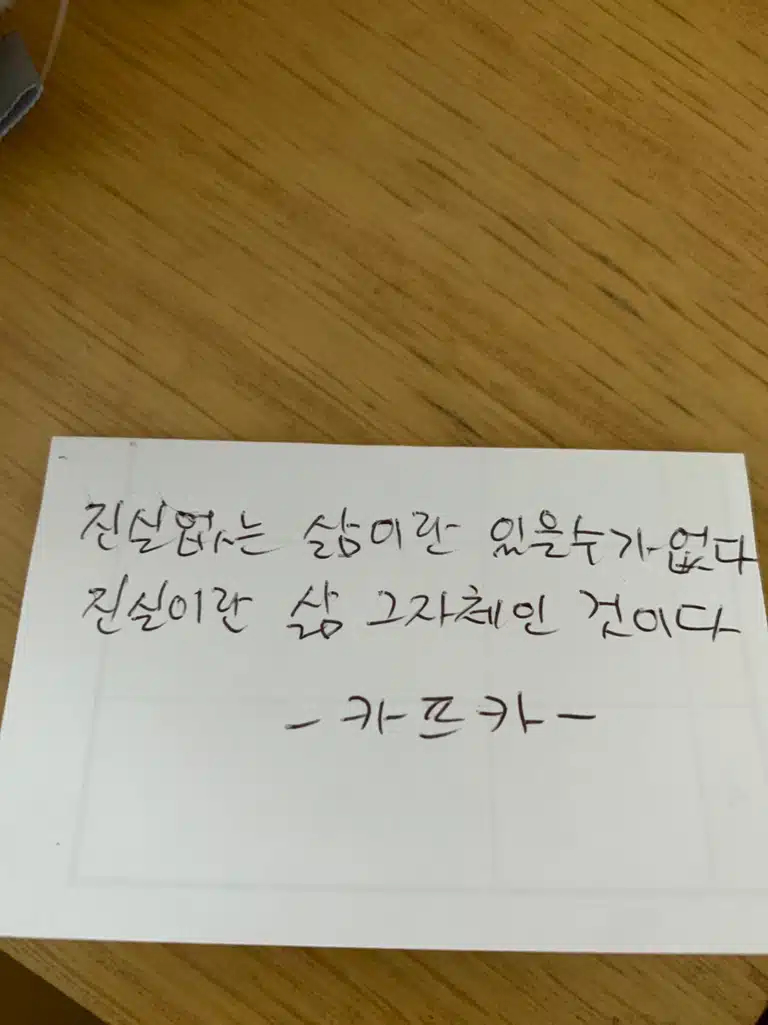 진실없는 삶이란 있을수가없다
진실이란 삶 그자체인 것이다
- 카프카 -